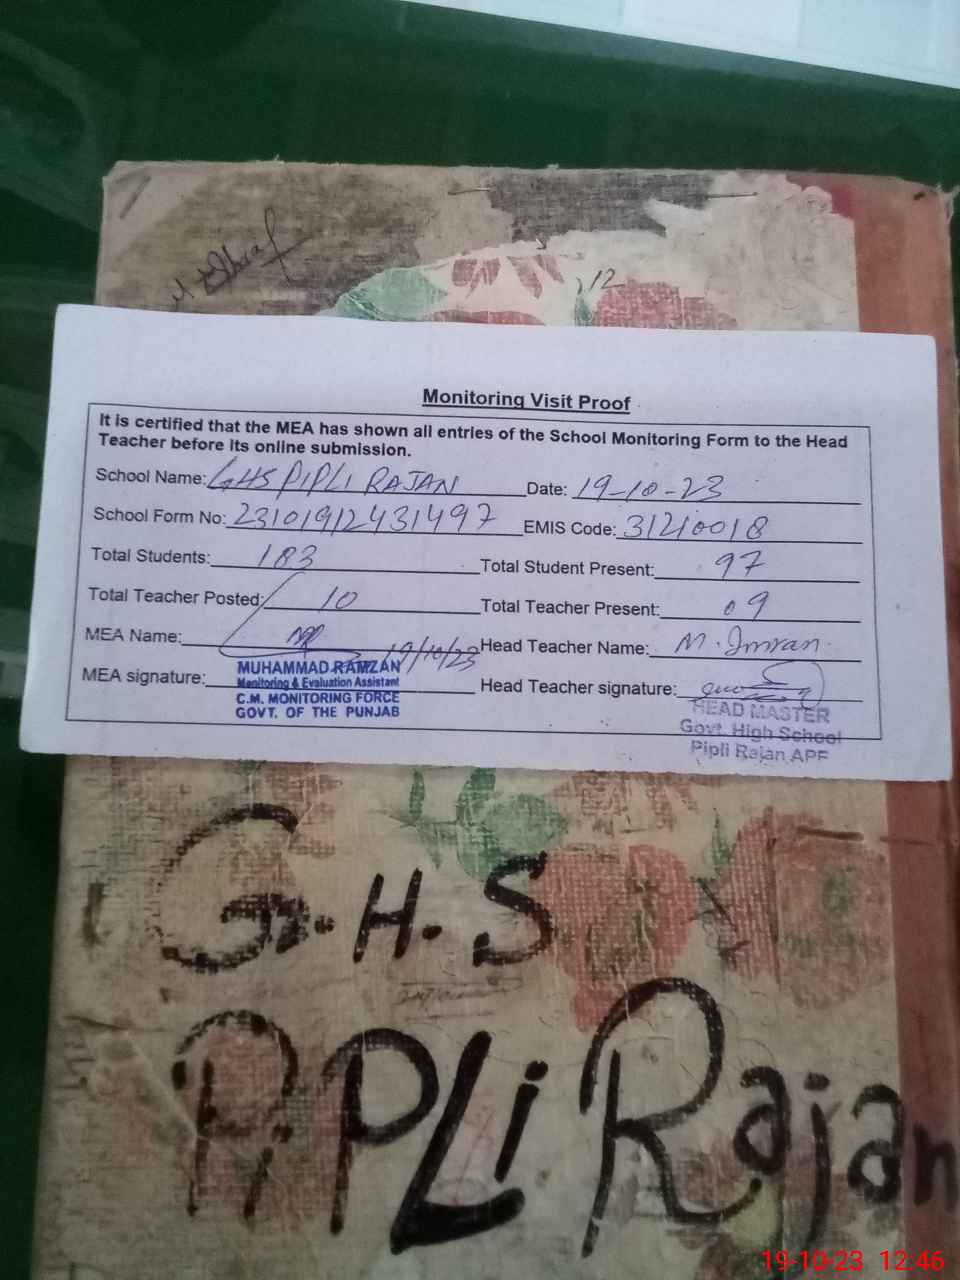 M Ashraf
12
Monitoring Visit Proof
It is certified that the MEA has shown all entries of the School Monitoring Form to the Head
Teacher before its online submission.
School Name: GHS PIPLI RAJAN Date: 19-10-23
School Form No: 2310191243149 7 EMIS Code: 31210018
Total Students: 183 Total Student Present: 97
Total Teacher Posted: 10 Total Teacher Present: 09
MEA Name: 19/10/23 Head Teacher Name: M. Imran.
MEA signature: Head Teacher signature:
MUHAMMAD RAMZAN
Monitoring & Evaluation Assistant
C.M. MONITORING FORCE
GOVT. OF THE PUNJAB
HEAD MASTER
Govt. High School
Pipli Rajan APE
G.H.S
PiPLi Rajan
19-10-23 12:46